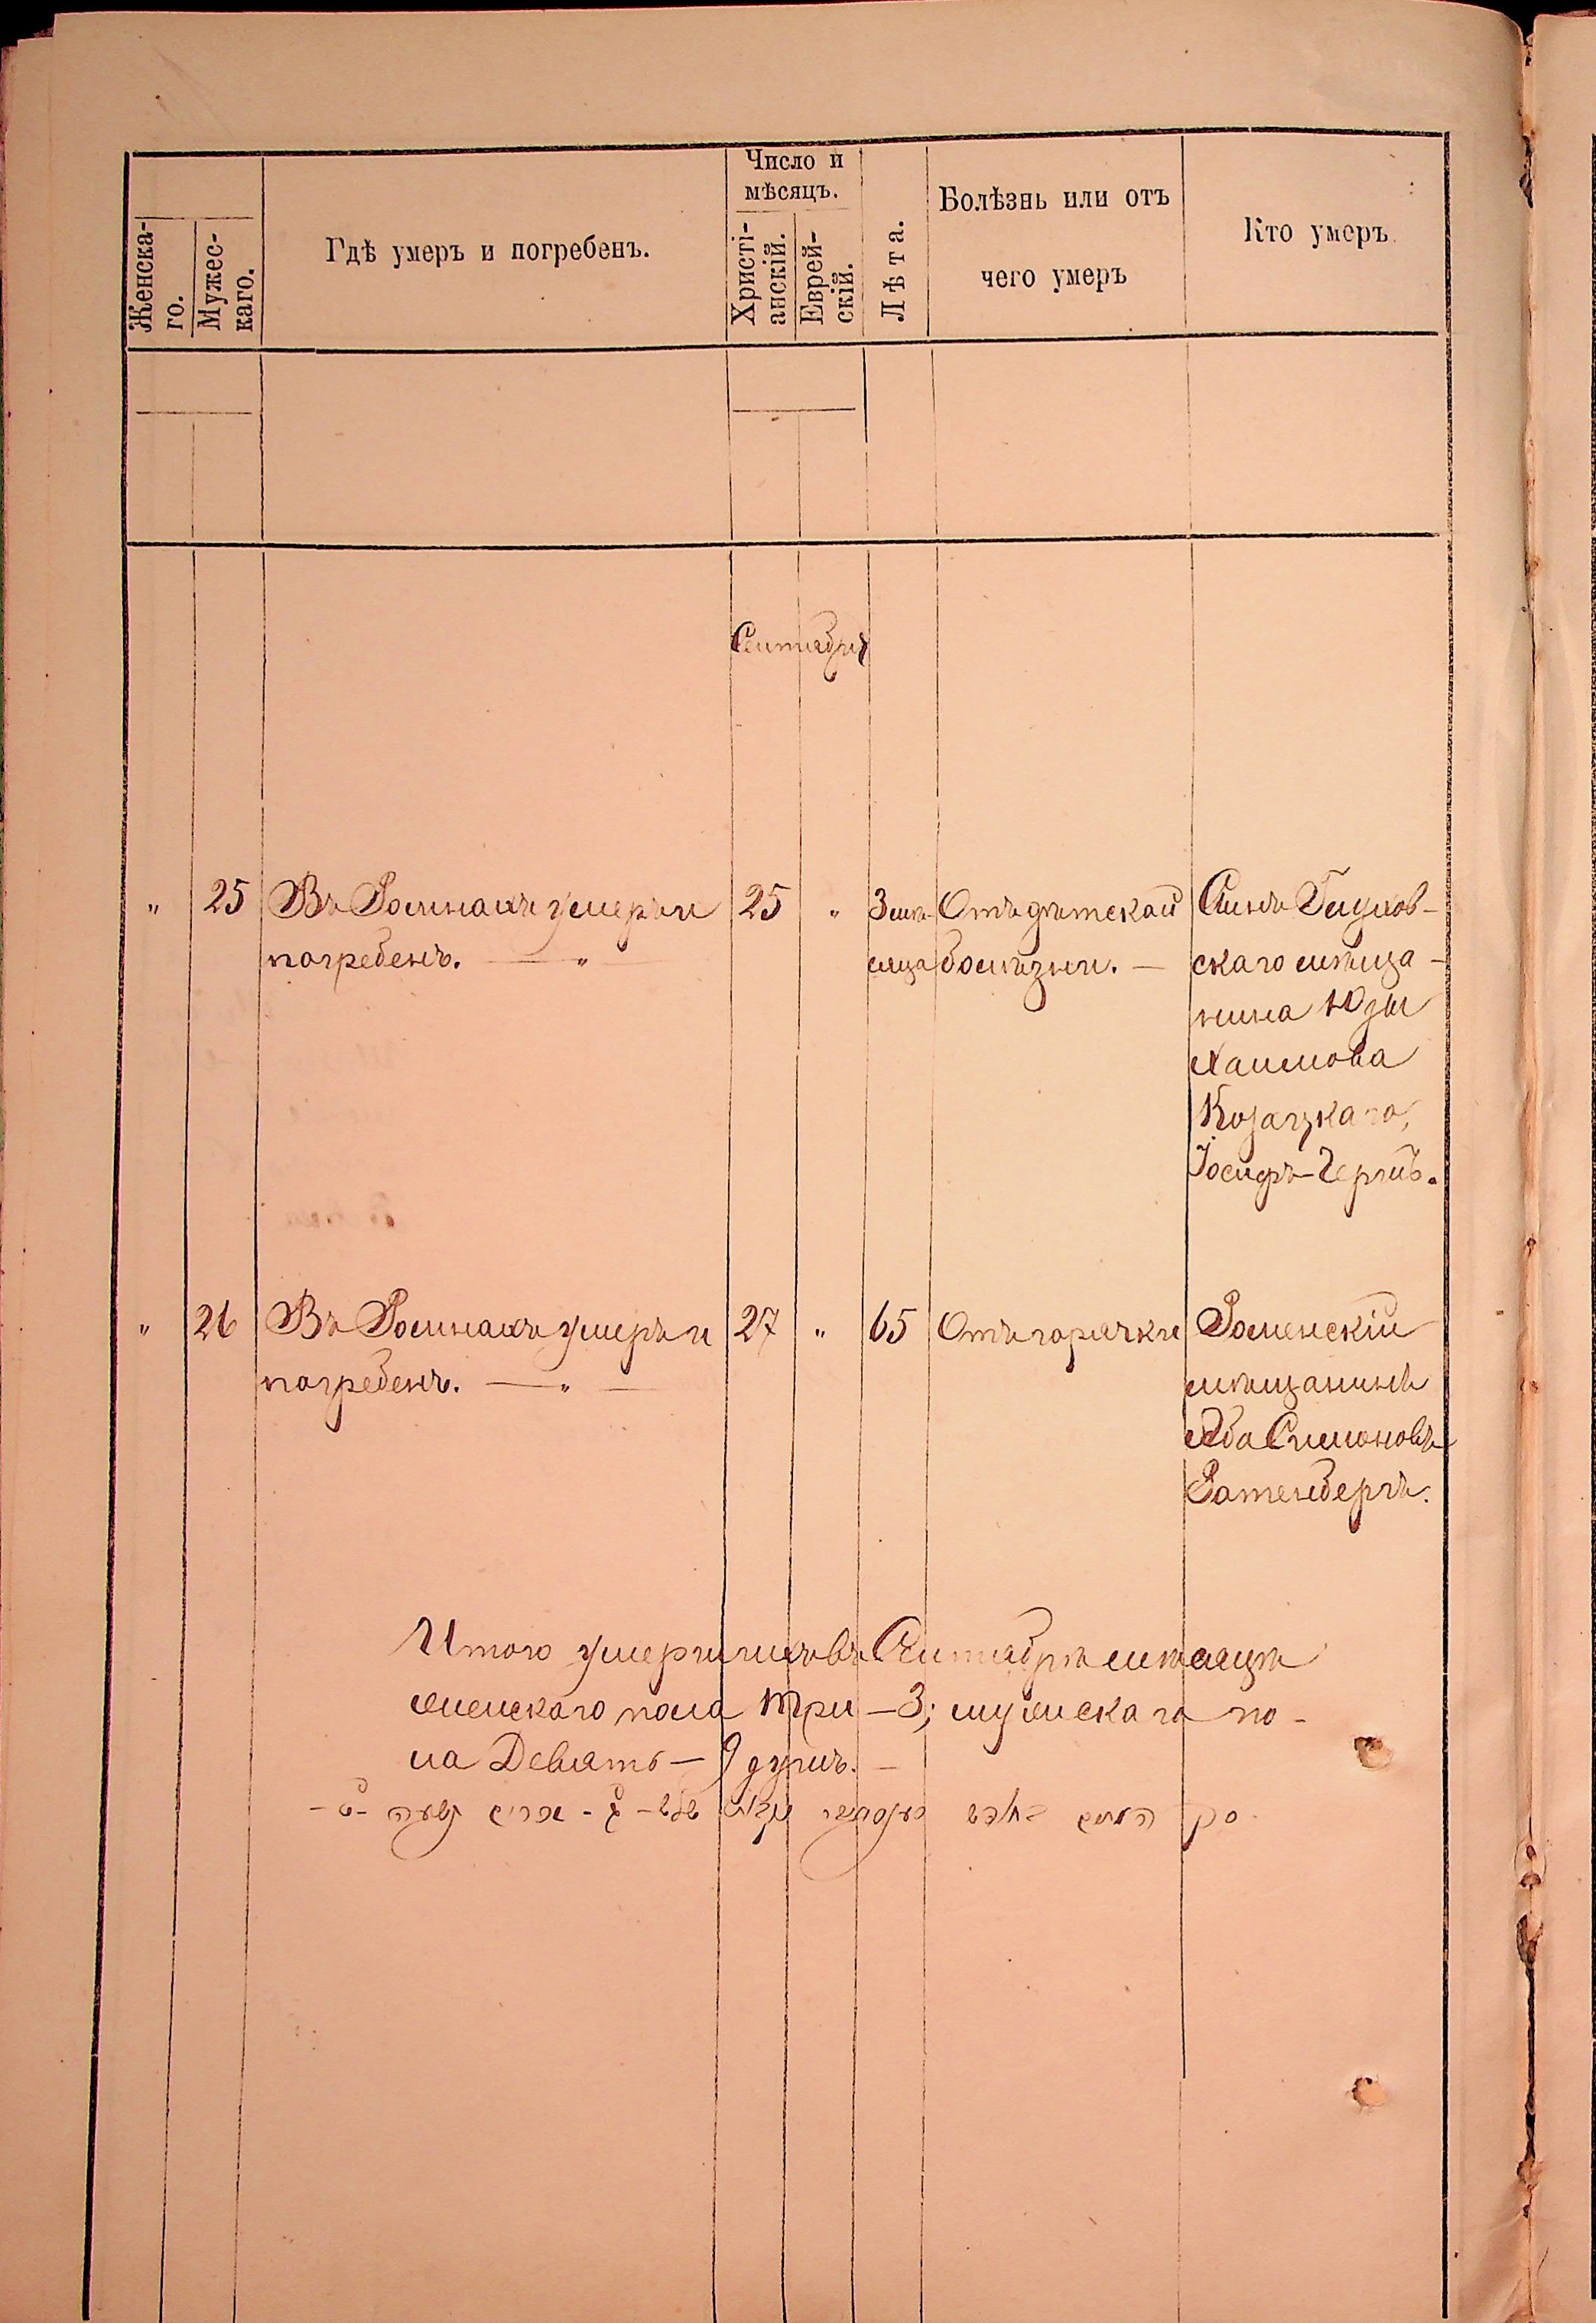 Женска-
го.
Мужес-
каго.
Гдѣ умеръ и погребенъ.
Число и
мѣсяцъ.
Христі-
анскій.
Еврей-
скій.
Лѣта.
Болѣзнь или отъ
чего умеръ
Кто умеръ
Сентября
" 25 Въ Ромнахъ умеръ и 25 " 3 мѣ- Отъ дѣтской Сынъ Глухов-
погребенъ. — " — сяца болѣзни. — скаго мѣща-
нина Юды
Хаимова
Козацкаго,
Іосифъ-Герцъ.
" 26 Въ Ромнахъ умеръ и 27 " 65 Отъ горячки Роменскій
погребенъ. — " — мѣщанинъ
Аба Симоновъ
Ротенбергъ.
Итого умершихъ въ Сентябрѣ мѣсяцѣ
женскаго пола три — 3; мужскаго по-
ла Девять — 9 душъ. —